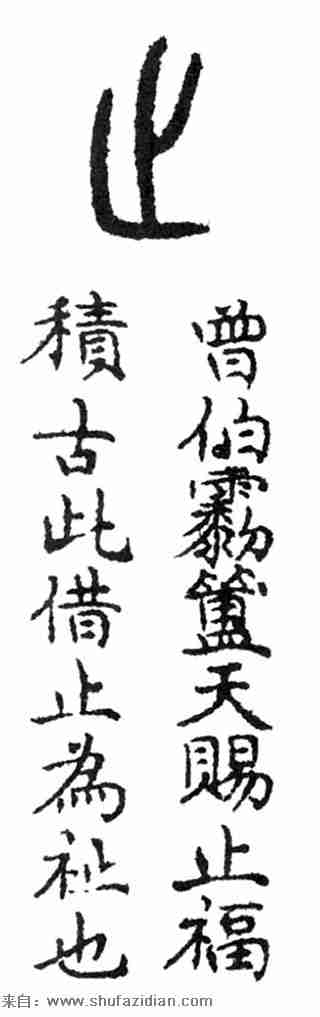 止
曾伯霥簠天賜止福
積古此借止為祉也
来自：www.shufazidian.com